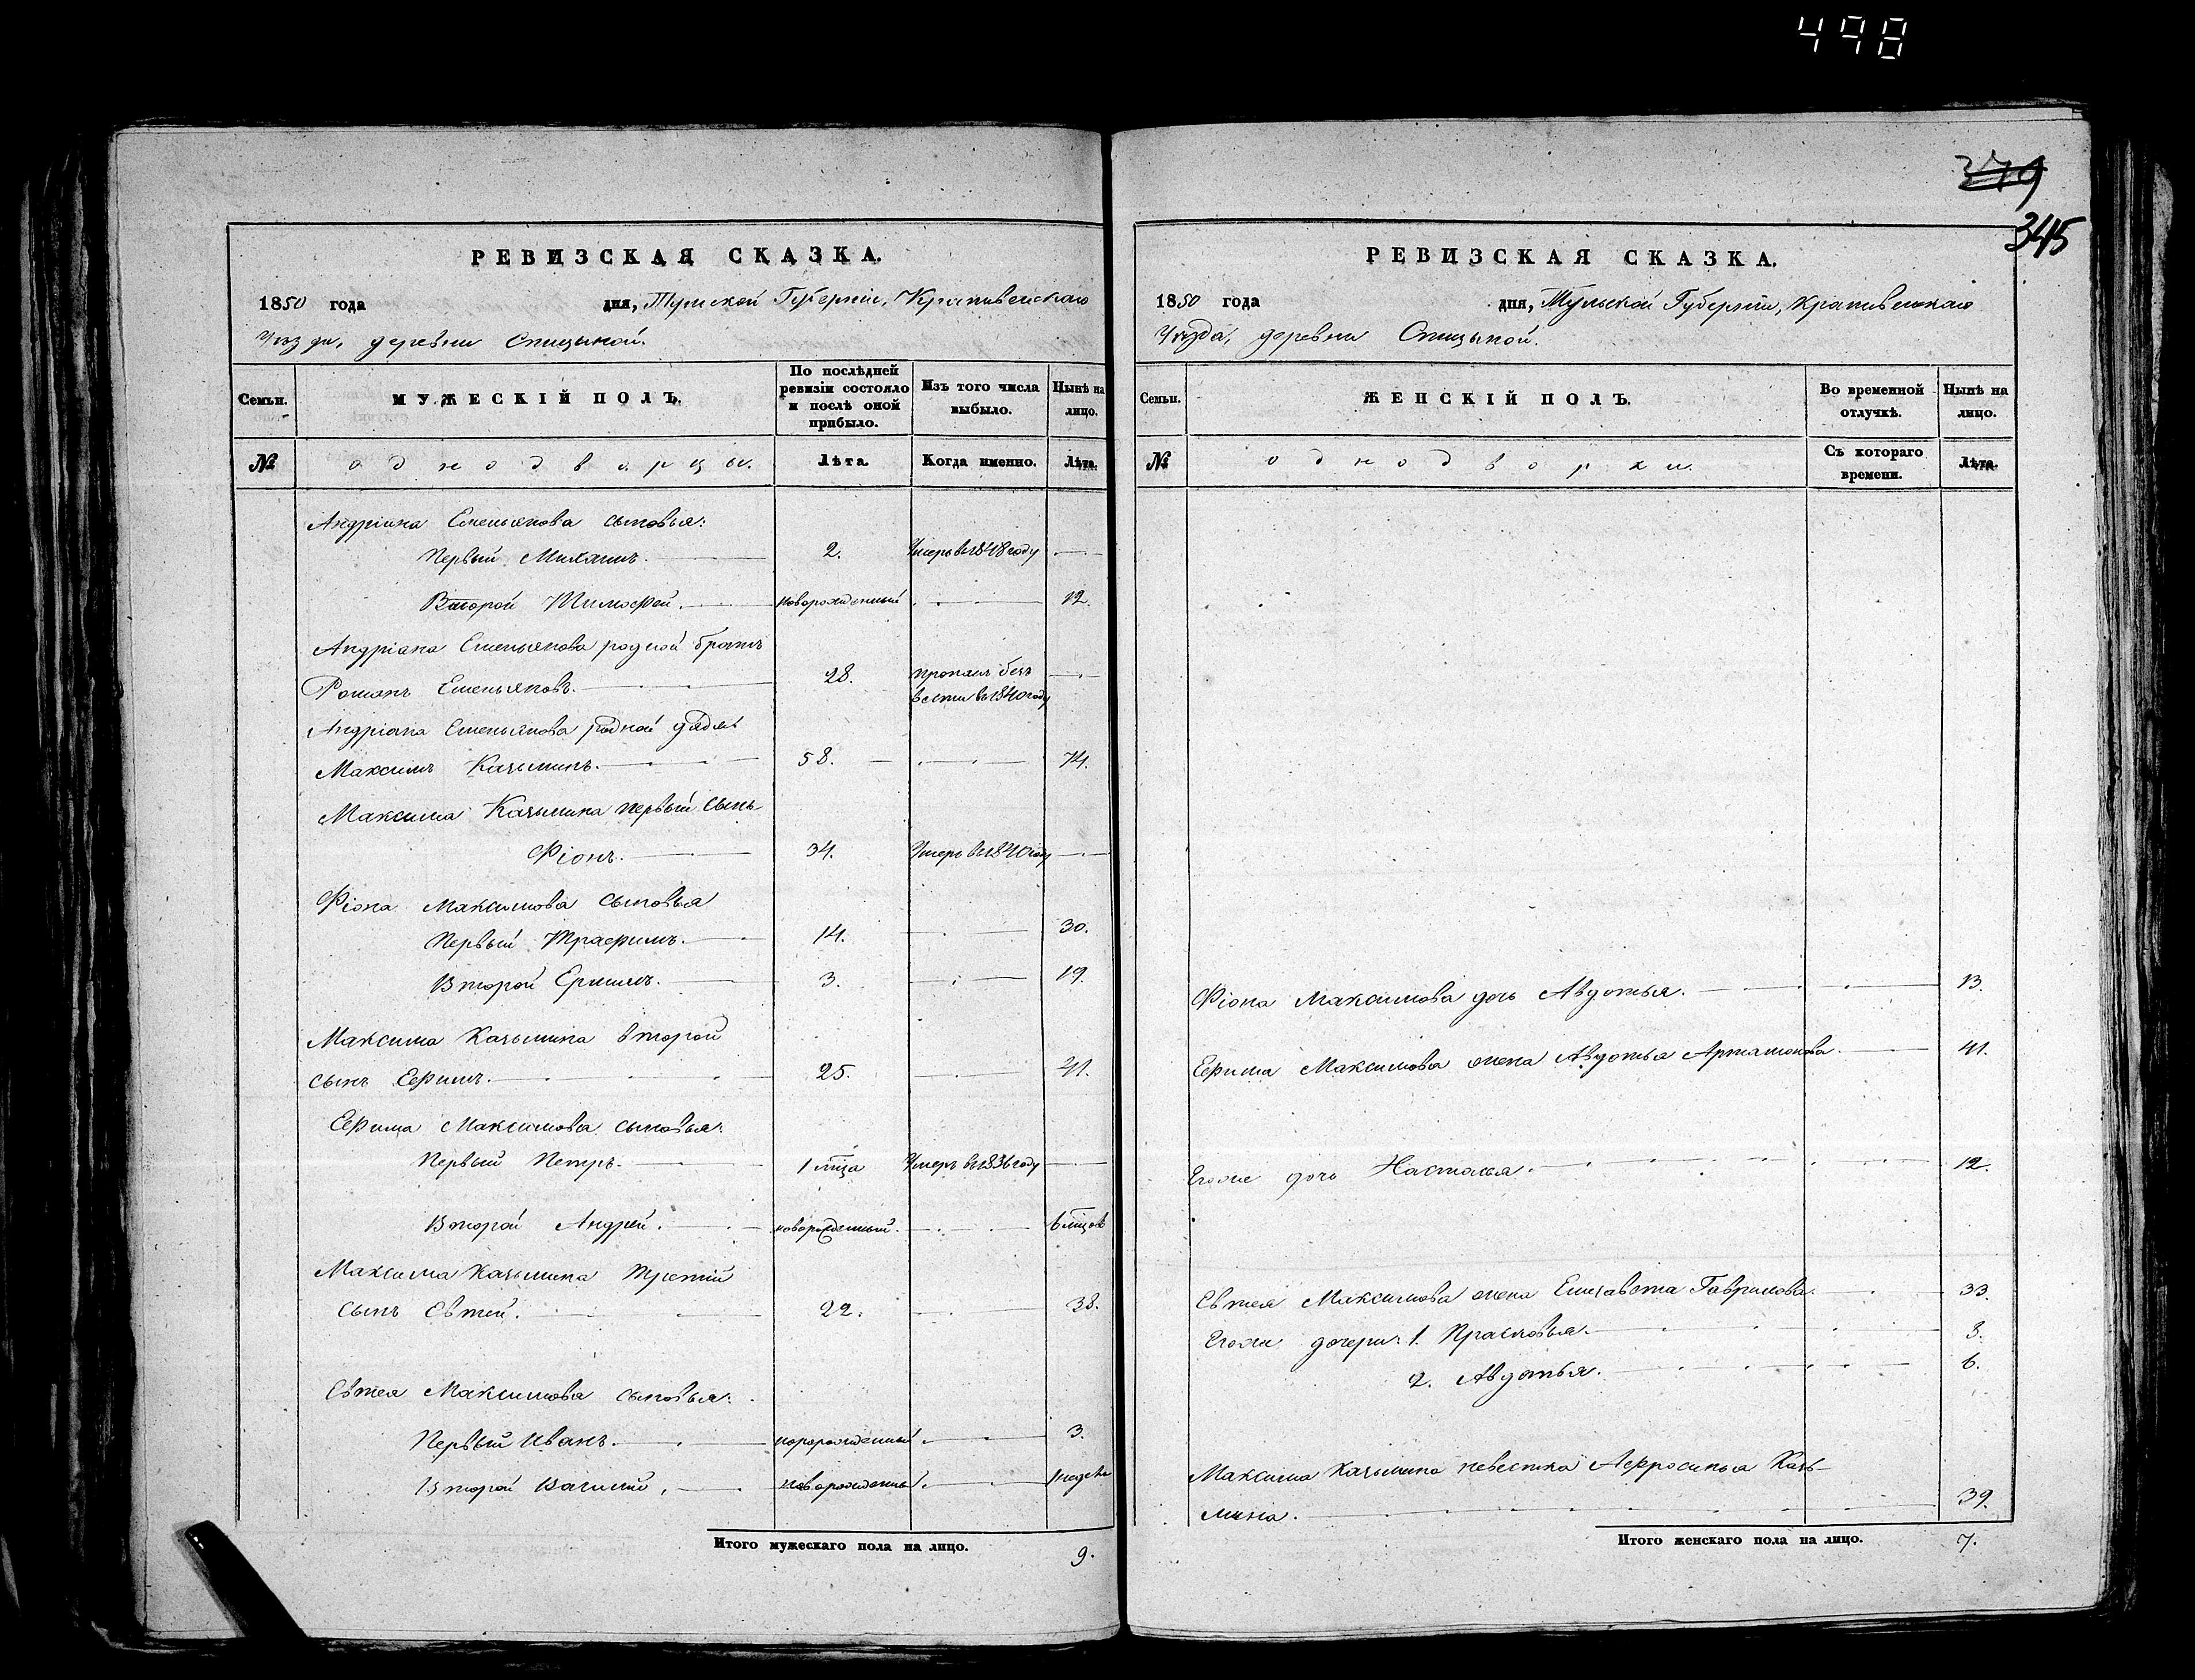 498
379
345
РЕВИЗСКАЯ СКАЗКА.
1850 года дня, Тульской Губерніи, Крапивенскаго
Уѣзда, деревни Спицыной.
Семьи. МУЖЕСКІЙ ПОЛЪ. По послѣдней ревизіи состояло и послѣ оной прибыло. Изъ того числа выбыло. Нынѣ на лицо.
№ однодворцы. Лѣта. Когда именно. Лѣта.
Андріяна Емельянова сыновья:
Первый Михаилъ. 2. Умеръ въ 1848 году
Второй Тимофей. новорожденный 12.
Андріана Емельянова родной братъ
Романъ Емельяновъ. 28. пропалъ безъ
вести въ 1840 году
Андріана Емельянова родной дядя
Максимъ Казьминъ. 58. 74.
Максима Казьмина первый сынъ
Фіонъ. 34. Умеръ въ 1840 году
Фіона Максимова сыновья
Первый Трафимъ. 14. 30.
Второй Ермилъ. 3. 19.
Максима Казьмина второй
сынъ Ефимъ. 25. 41.
Ефима Максимова сыновья:
Первый Петръ. 1 мца Умеръ въ 1836 году
Второй Андрей. новорожденный. 6 мцовъ
Максима Казьмина третій
сынъ Евтей. 22. 38.
Евтея Максимова сыновья:
Первый Иванъ. новорожденный. 3.
Второй Василий. новорожденны. 1 недель
Итого мужескаго пола на лицо. 9.
РЕВИЗСКАЯ СКАЗКА.
1850 года дня, Тульской Губерніи, Крапивенскаго
Уѣзда, деревни Спицыной.
Семьи. ЖЕНСКІЙ ПОЛЪ. Во временной отлучкѣ. Нынѣ на лицо.
№ однодворки. Съ котораго времени. Лѣта.
Фіона Максимова дочь Авдотья. 13.
Ефима Максимова жена Авдотья Артамонова. 41.
Егоже дочь Насталья. 12.
Евтея Максимова жена Елизавета Гаврилова. 33.
Егоже дочери: 1. Прасковья. 8.
2. Авдотья. 6.
Максима Казьмина невестка Афросинья Козь-
мина. 39.
Итого женскаго пола на лицо. 7.